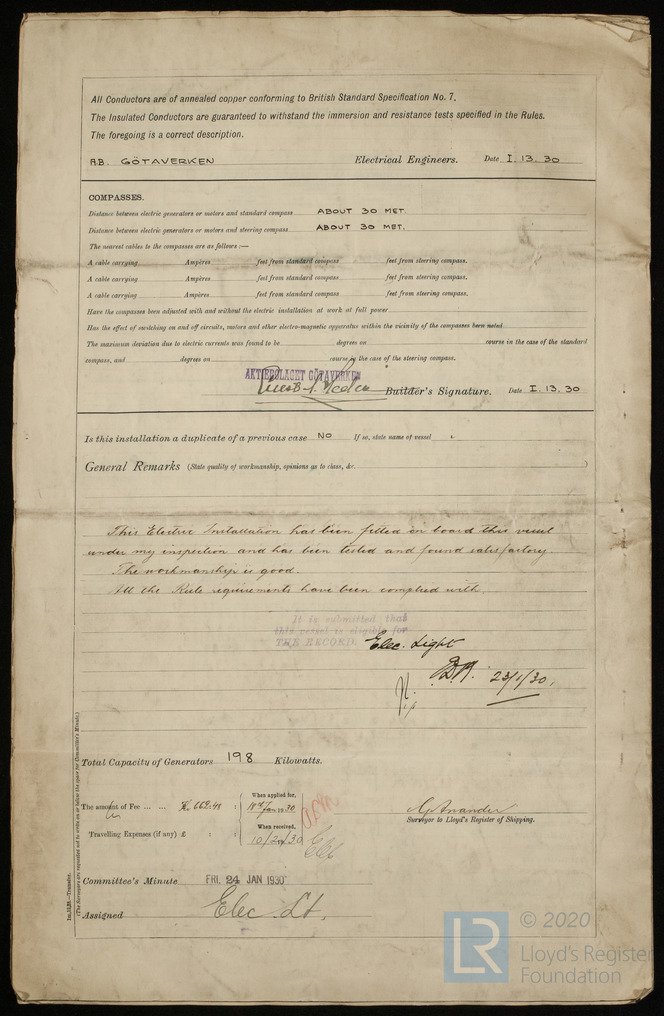 All Conductors are of annealed copper conforming to British Standard Specification No. 7.
The Insulated Conductors are guaranteed to withstand the immersion and resistance tests specified in the Rules.
The foregoing is a correct description.
A.B. GÖTAVERKEN Electrical Engineers. Date I. 13. 30
COMPASSES.
Distance between electric generators or motors and standard compass ABOUT 30 MET.
Distance between electric generators or motors and steering compass ABOUT 30 MET.
The nearest cables to the compasses are as follows:—
A cable carrying Ampères feet from standard compass feet from steering compass.
A cable carrying Ampères feet from standard compass feet from steering compass.
A cable carrying Ampères feet from standard compass feet from steering compass.
Have the compasses been adjusted with and without the electric installation at work at full power
Has the effect of switching on and off circuits, motors and other electro-magnetic apparatus within the vicinity of the compasses been noted
The maximum deviation due to electric currents was found to be degrees on course in the case of the standard
compass, and degrees on course in the case of the steering compass.
AKTIEBOLAGET GÖTAVERKEN
Builder's Signature. Date I. 13. 30
Is this installation a duplicate of a previous case No If so, state name of vessel
General Remarks (State quality of workmanship, opinions as to class, &c. )
This Electric Installation has been fitted on board this vessel
under my inspection and has been tested and found satisfactory.
The workmanship is good.
All the Rule requirements have been complied with.
It is submitted that
this vessel is eligible for
THE RECORD. Elec. Light
23/1/30.
Total Capacity of Generators 198 Kilowatts.
The amount of Fee ... ... Kr. 662.48 : When applied for, 18th Jan 1930
Travelling Expenses (if any) £ : : When received, 10/2 1930
Surveyor to Lloyd's Register of Shipping.
Committee's Minute FRI. 24 JAN 1930
Assigned Elec. Lt.
(The Surveyors are requested not to write on or below the space for Committee's Minute.)
© 2020
LR Lloyd's Register
Foundation